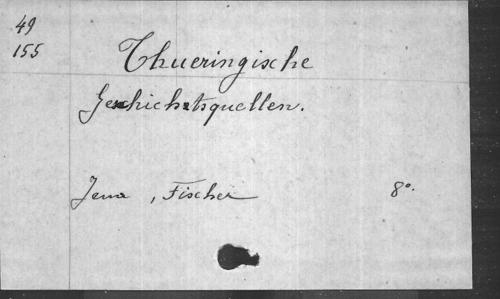 49
155
Thueringische
Geschichtsquellen.
Jena, Fischer 8°.